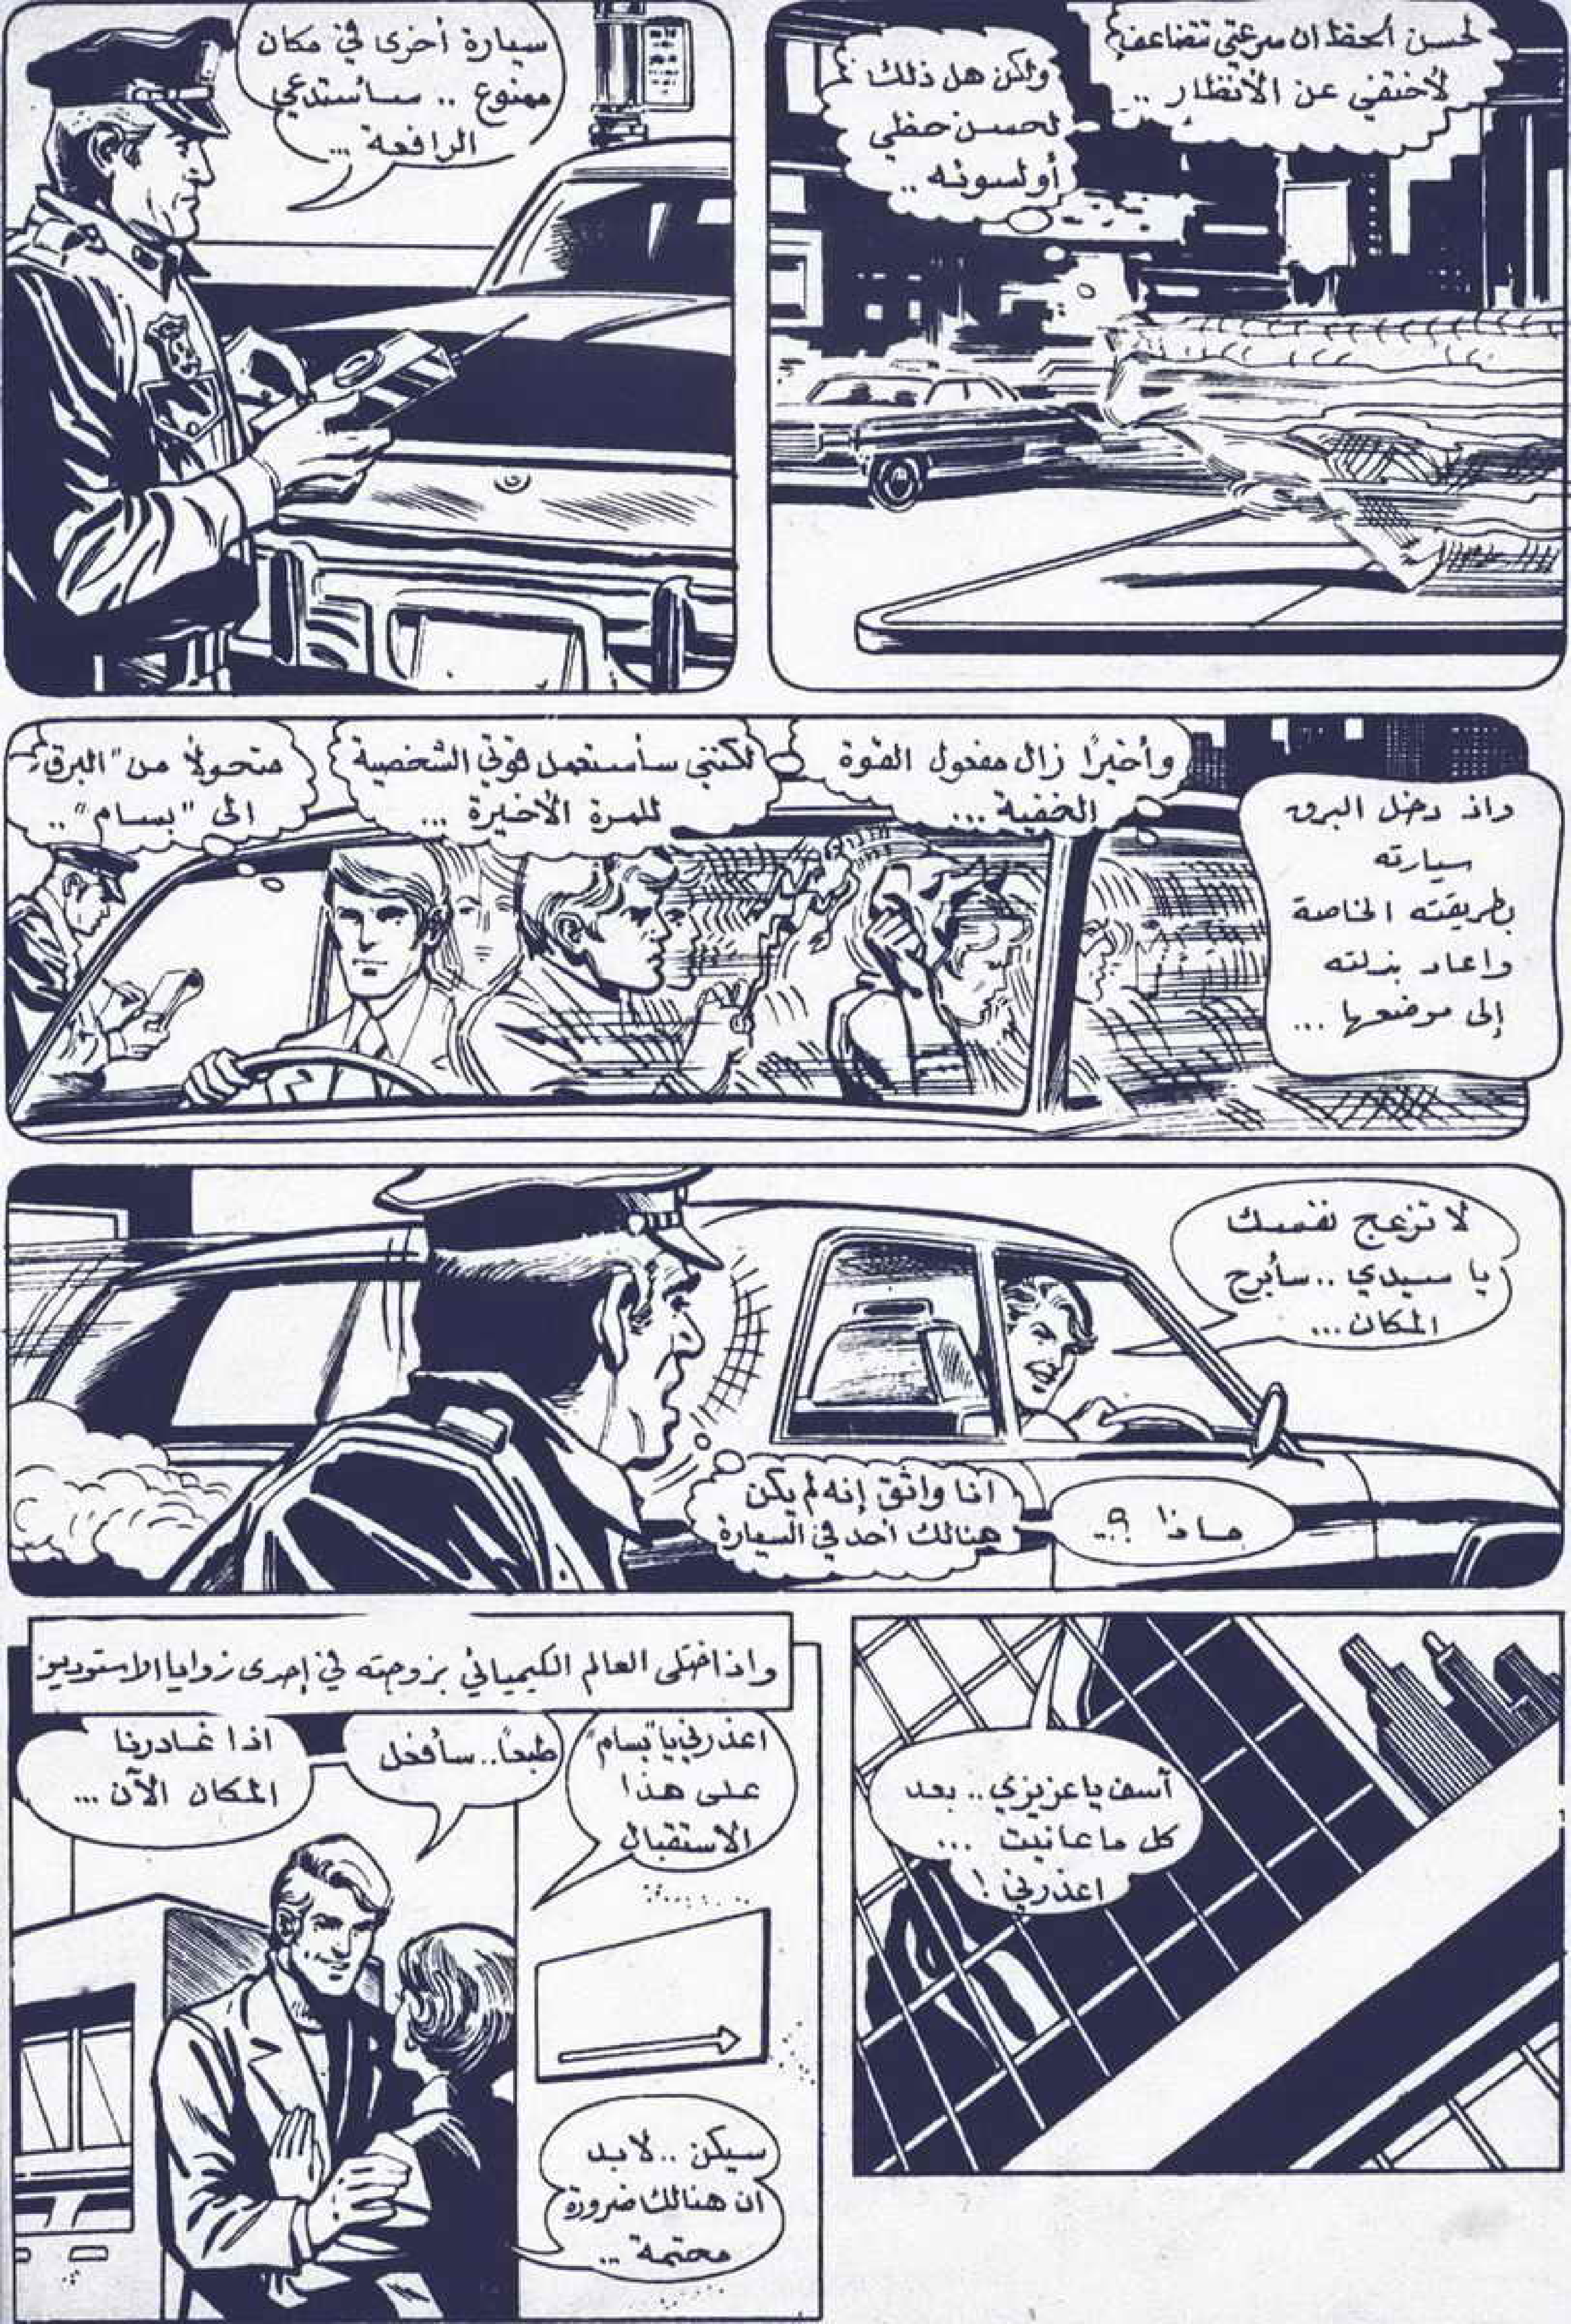 لحسن الحظ ان سرعتي تتضاعف
لأختفي عن الأنظار ..
ولكن هل ذلك
لحسن حظي
أو لسوئه ..
سيارة أخرى في مكان
ممنوع .. سأستدعي
الرافعة ...
واذ دخل البرق
سيارته
بطريقته الخاصة
واعاد بذلته
إلى موضعها ...
وأخيرًا زال مفعول القوة
الخفية ...
لكنني سأستعمل قوتي الشخصية
للمرة الأخيرة ...
متحولاً من "البرق"
الى "بسام" ..
لا تزعج نفسك
يا سيدي .. سأبرح
المكان ...
ماذا ؟..
انا واثق إنه لم يكن
هنالك أحد في السيارة
آسف يا عزيزي .. بعد
كل ما عانيت ...
اعذرني !
واذ اختلى العالم الكيميائي بزوجته في إحدى زوايا الاستوديو
اعذرني يا "بسام"
على هذا
الاستقبال
طبعًا.. سأفعل
اذا غادرنا
المكان الآن ...
سيكن .. لا بد
ان هنالك ضرورة
محتمة ...